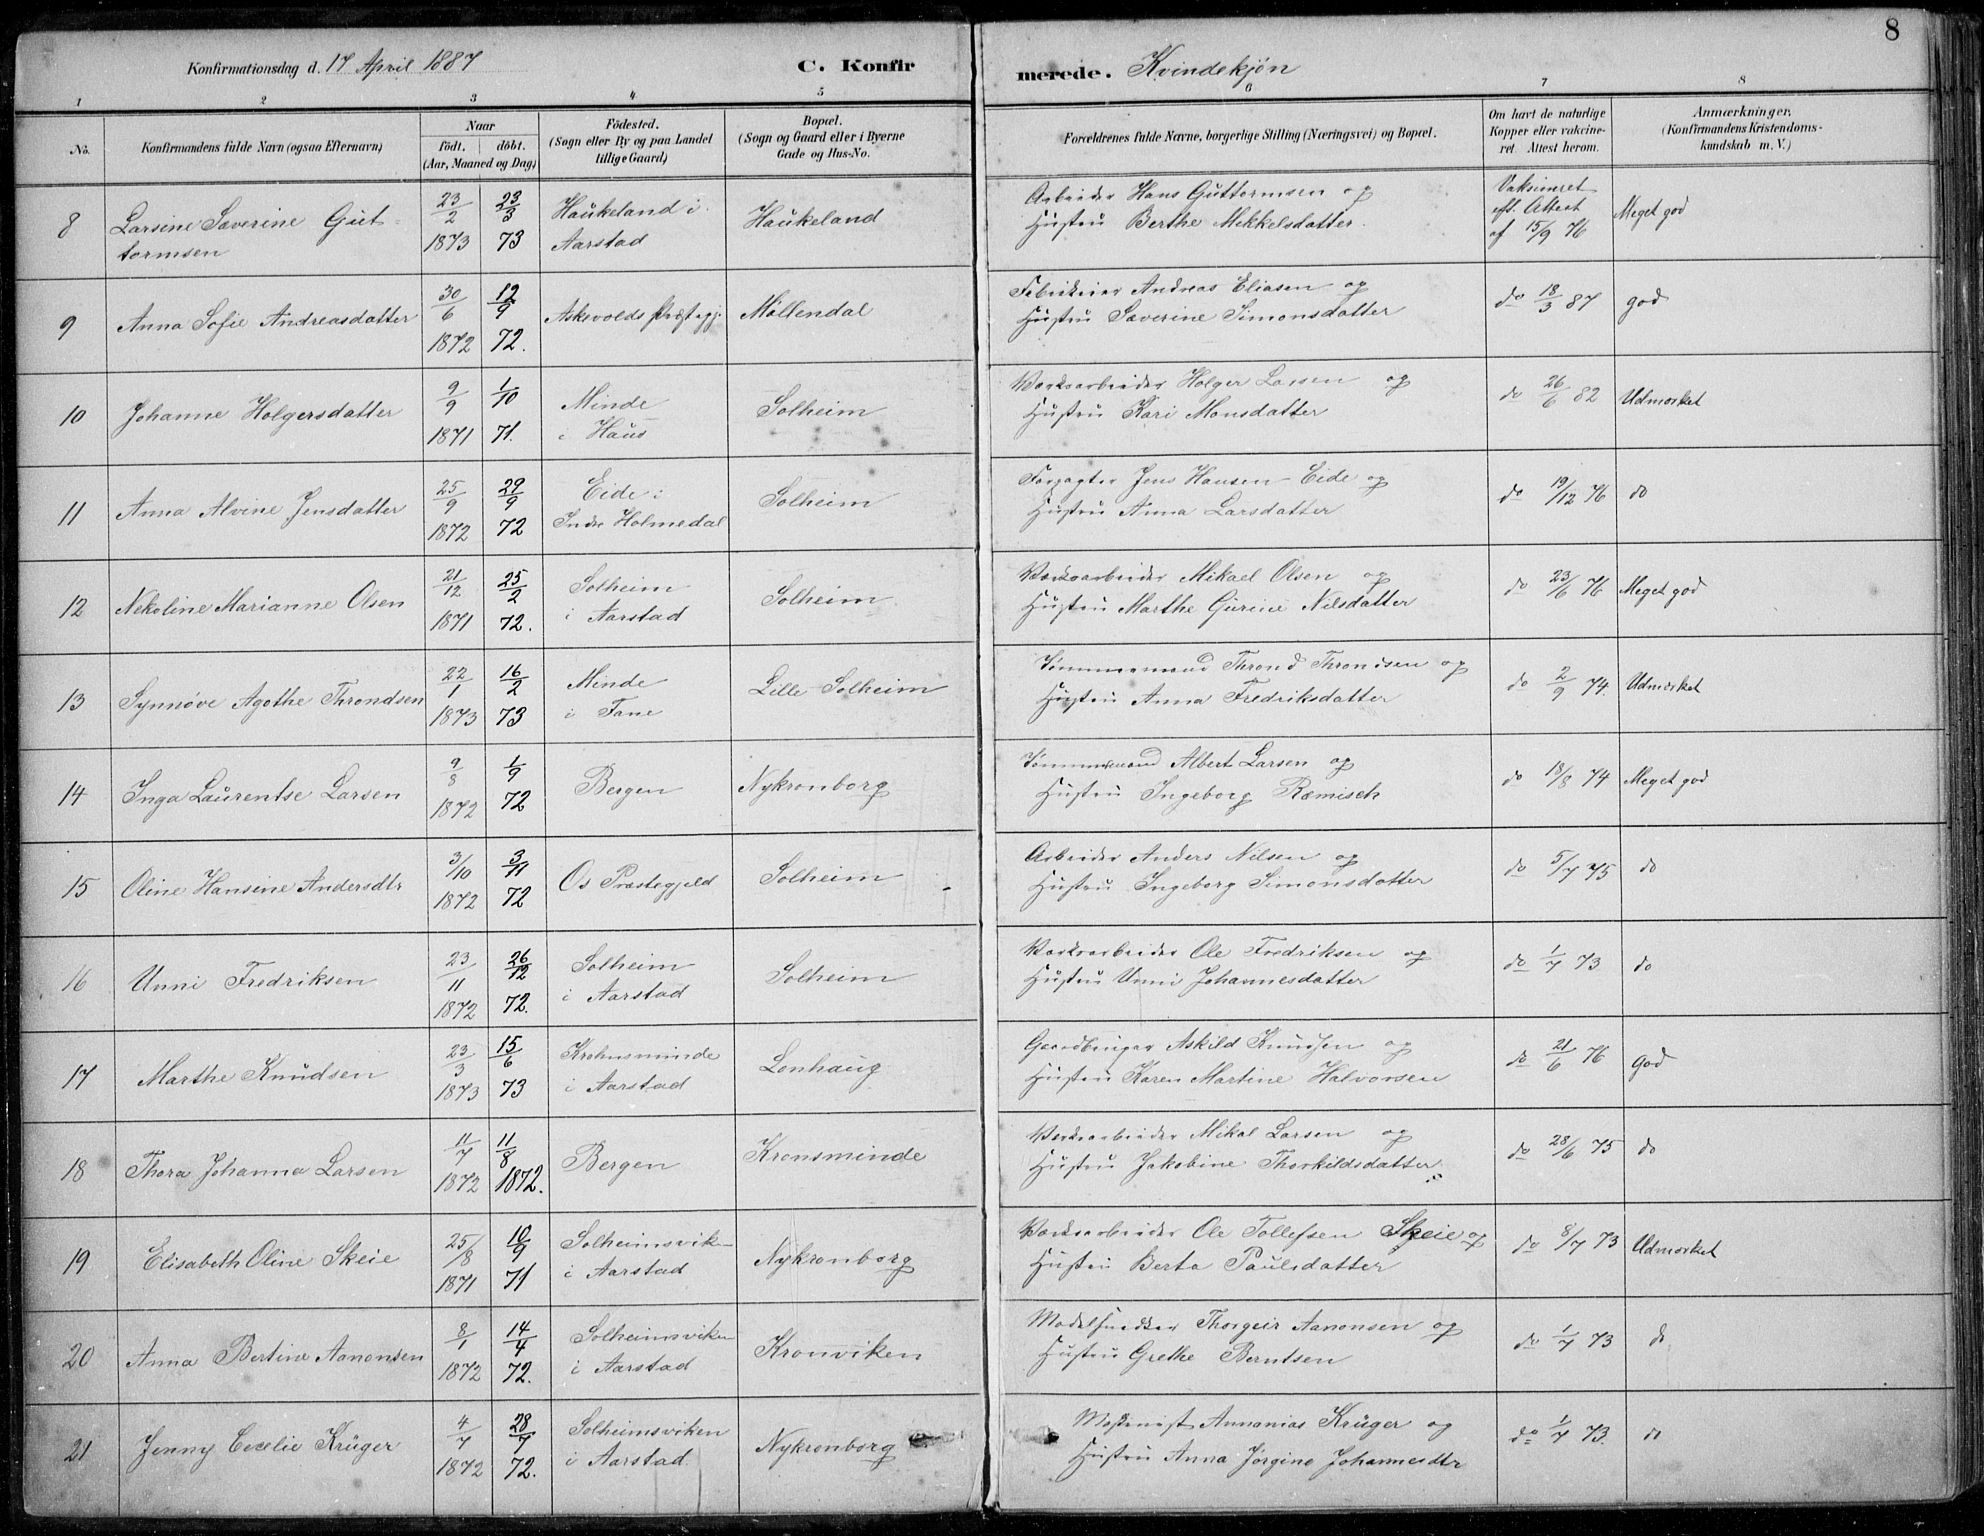 8
Konfirmationsdag d. 17 April 1887 C. Konfirmerede. Kvindekjön
1 2 3 4 5 6 7 8
No. Konfirmandens fulde Navn (ogsaa Efternavn) Naar födt. döbt. (Aar, Maaned og Dag) Födested. (Sogn eller By og paa Landet tillige Gaard) Bopæl. (Sogn og Gaard eller i Byerne Gade og Hus-No. Forældrenes fulde Navne, borgerlige Stilling (Næringsvei) og Bopæl. Om havt de naturlige Kopper eller vakcineret. Attest herom. Anmærkninger. (Konfirmandens Kristendomskundskab m. V.)
8 Larsine Severine Guttormsen 23/2 1873 23/3 73 Haukeland i Aarstad Haukeland Arbeider Hans Guttormsen og Hustru Berthe Mikkelsdatter. Vaksineret efl. Attest af 15/9 76 Meget god
9 Anna Sofie Andreasdatter 30/6 1872 12/9 72. Askevolds Præstegj. Möllendal Andreas Eliasen og Hustru Severine Simonsdatter do 18/3 87 god
10 Johanne Holgersdatter 9/9 1871 1/10 71. Minde i Haus Solheim Værksarbeider Holger Larsen og Hustru Kari Monsdatter do 26/6 82 Udmerket
11 Anna Alvine Jensdatter 25/9 1872 29/9 72 Eide i Indre Holmedal Solheim Forpagter Jens Hansen Eide og Hustru Anna Larsdatter do 19/12 76 do
12 Nekoline Marianne Olsen 21/12 1871 25/2 72. Solheim i Aarstad Solheim Værksarbeider Mikael Olsen og Hustru Marthe Gurine Nilsdatter do 23/6 76 Meget god
13 Synnøve Agathe Throndsen 22/1 1873 16/2 73 Minde i Fane Lille Solheim Tömmermand Thrond Throndsen og Hustru Anna Fredriksdatter do 2/9 74. Udmerket
14 Inga Laurentse Larsen 9/8 1872 1/9 72 Bergen Nykronborg Tömmermand Albert Larsen og Hustru Ingeborg Ræmisch do 18/8 74 Meget god
15 Oline Hansine Andersdtr 3/10 1872 3/11 72 Os Præstegjeld Solheim Arbeider Anders Nilsen og Hustru Ingeborg Simonsdatter do 5/7 75 do
16 Unni Fredriksen 23/11 1872 26/12 72. Solheim i Aarstad Solheim Værksarbeider Ole Fredriksen og Hustru Unni Johannesdatter do 1/7 73 do
17 Marthe Knudsen 23/3 1873 15/6 73 Krohnsminde i Aarstad Lonhaug Gaardbruger Askild Knudsen og Hustru Karen Martine Halvorsen do 21/6 76 God
18 Thora Johanna Larsen 11/7 1872 11/8 1872. Bergen Kronsminde Værksarbeider Mikal Larsen og Hustru Jakobine Thorkildsdatter do 28/6 75 do
19 Elisabeth Oline Skeie 25/8 1871 10/9 71 Solheimsviken i Aarstad Nykronborg Værksarbeider Ole Tollefsen Skeie og Hustru Berta Paulsdatter do 8/7 73 Udmerket
20 Anna Bertine Aanonsen 8/1 1872 14/4 72. Solheimsviken i Aarstad Kronviken Modelsnedker Thorgeir Aanonsen og Hustru Grethe Berntsen do 1/7 73 do
21 Jenny Cecelie Krüger 4/7 1872 28/7 72. Solheimsviken i Aarstad. Nykronborg Maskinist Annanias Krüger og Hustru Anna Jörgine Johannesdtr do 1/7 73. do